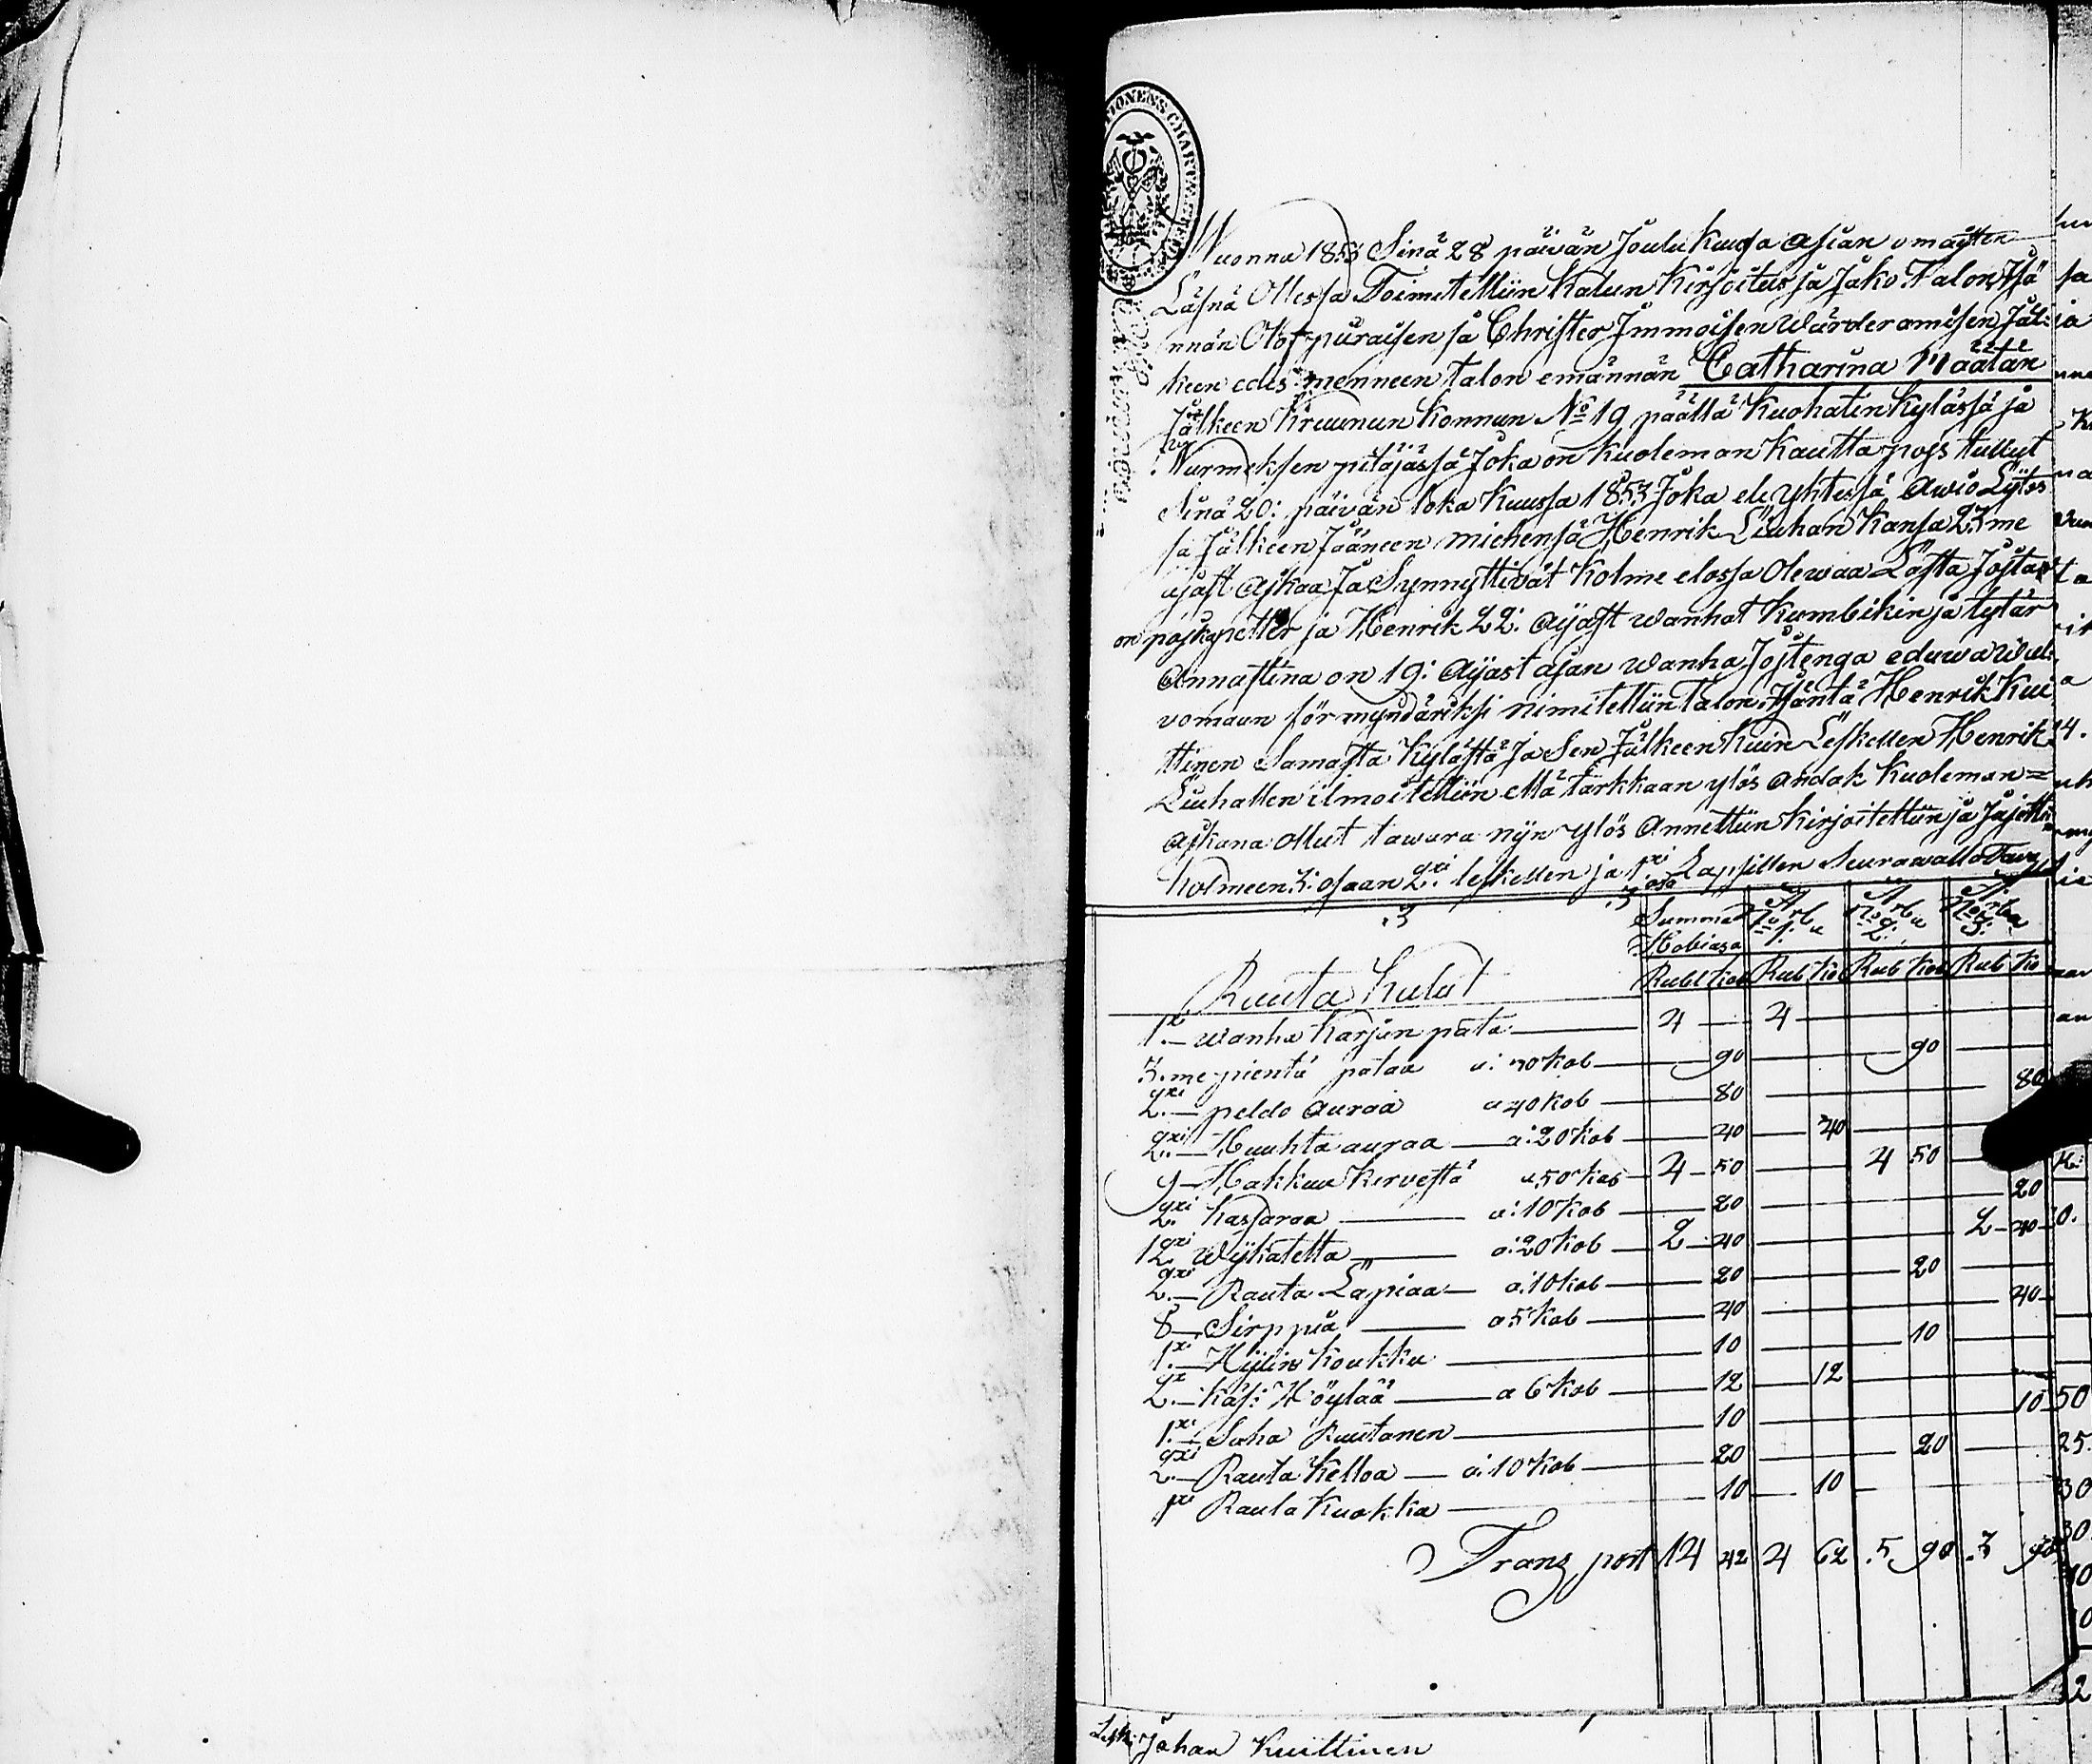 TIONENS CHARTÆ
Wuonna 1853 Sinä 28 päivän Joulu Kuusa asian omaisten
Läsnä Ollessa Toimitettiin Kalun Kirjoitus ja Jako Talon Isä
nnän Olof puraisen ja Christer Immoisen Wärderamisen Jäl-
keen edes menneen talon emännän Catharina Määtän
Jälkeen Kruunun Konnun No 19 päällä Kuohatin Kylässä ja
Nurmeksen pitäjässä Joka on Kuoleman Kautta pois tullut
Sinä 20: päivän loka Kuussa 1853 Joka eli yhtessä Awio Lijtos
sa Jälkeen Jääneen miehensä Henrik Liuhan Kansa 23 me
ajast aikaa Ja Synnyttivät Kolme elossa Olewaa Lasta Josta
on poika petter ja Henrik 22: aijast wanhat Kumbikin ja tytär
Annastina on 19: Aijast ajan wanha Jostenga eduwa wal-
vomaan förmyndäriksi nimitettiin Talon Isäntä Henrik Kui
ttinen Samasta Kylästä Ja Sen Jälkeen Kuin Leskellen Henrik
Liuhallen ilmoitettiin että tarkkaan ylös andak Kuoleman=
aikana ollut tawara nijn ylös Annettiin kirjoitettiin ja Jajetti
kolmeen 3: osaan 2xi leskellen ja 1xi osa Lapsillen Seurawalla Tawal
3 3
Summa Hobiasa
Arba No 1.
Arba No 2.
Arba No 3.
Rauta Kalut Rubl Kob Rub Ko Rub Kob Rub Ko
1xi — wanha Karjan pata — 4 — 4
3.me pientä pataa a: 30 Kob — 90 — 90
2xi — peldo auraa a 40 Kob — 80 — 80
2xi — Huuhta auraa — a: 20 Kob — 40 — 40
9 — Hakkuu Kirvestä a 50 Kob — 4 — 50 — 4 50
2xi Kassaraa — a: 10 Kob — 20 — 20
12xi Wijkatetta — a: 20 Kob — 2 — 40 — 2 — 40
2xi — Rauta Lapiaa — a: 10 Kob — 20 — 20
8 — Sirppiä — a 5 Kob — 40 — 40
1xi — Hijlin Koukku — 10 — 10
2xi — Käsi Höylää — a 6 Kob — 12 — 12
1xi — Saha Ruutanen — 10 — 10
2xi — Rauta Kelloa — a: 10 Kob — 20 — 20
1xi Rauta Kuokka — 10 — 10
Transport 14 42 4 62 5 90 3 90
Leski Johan Kuittinen